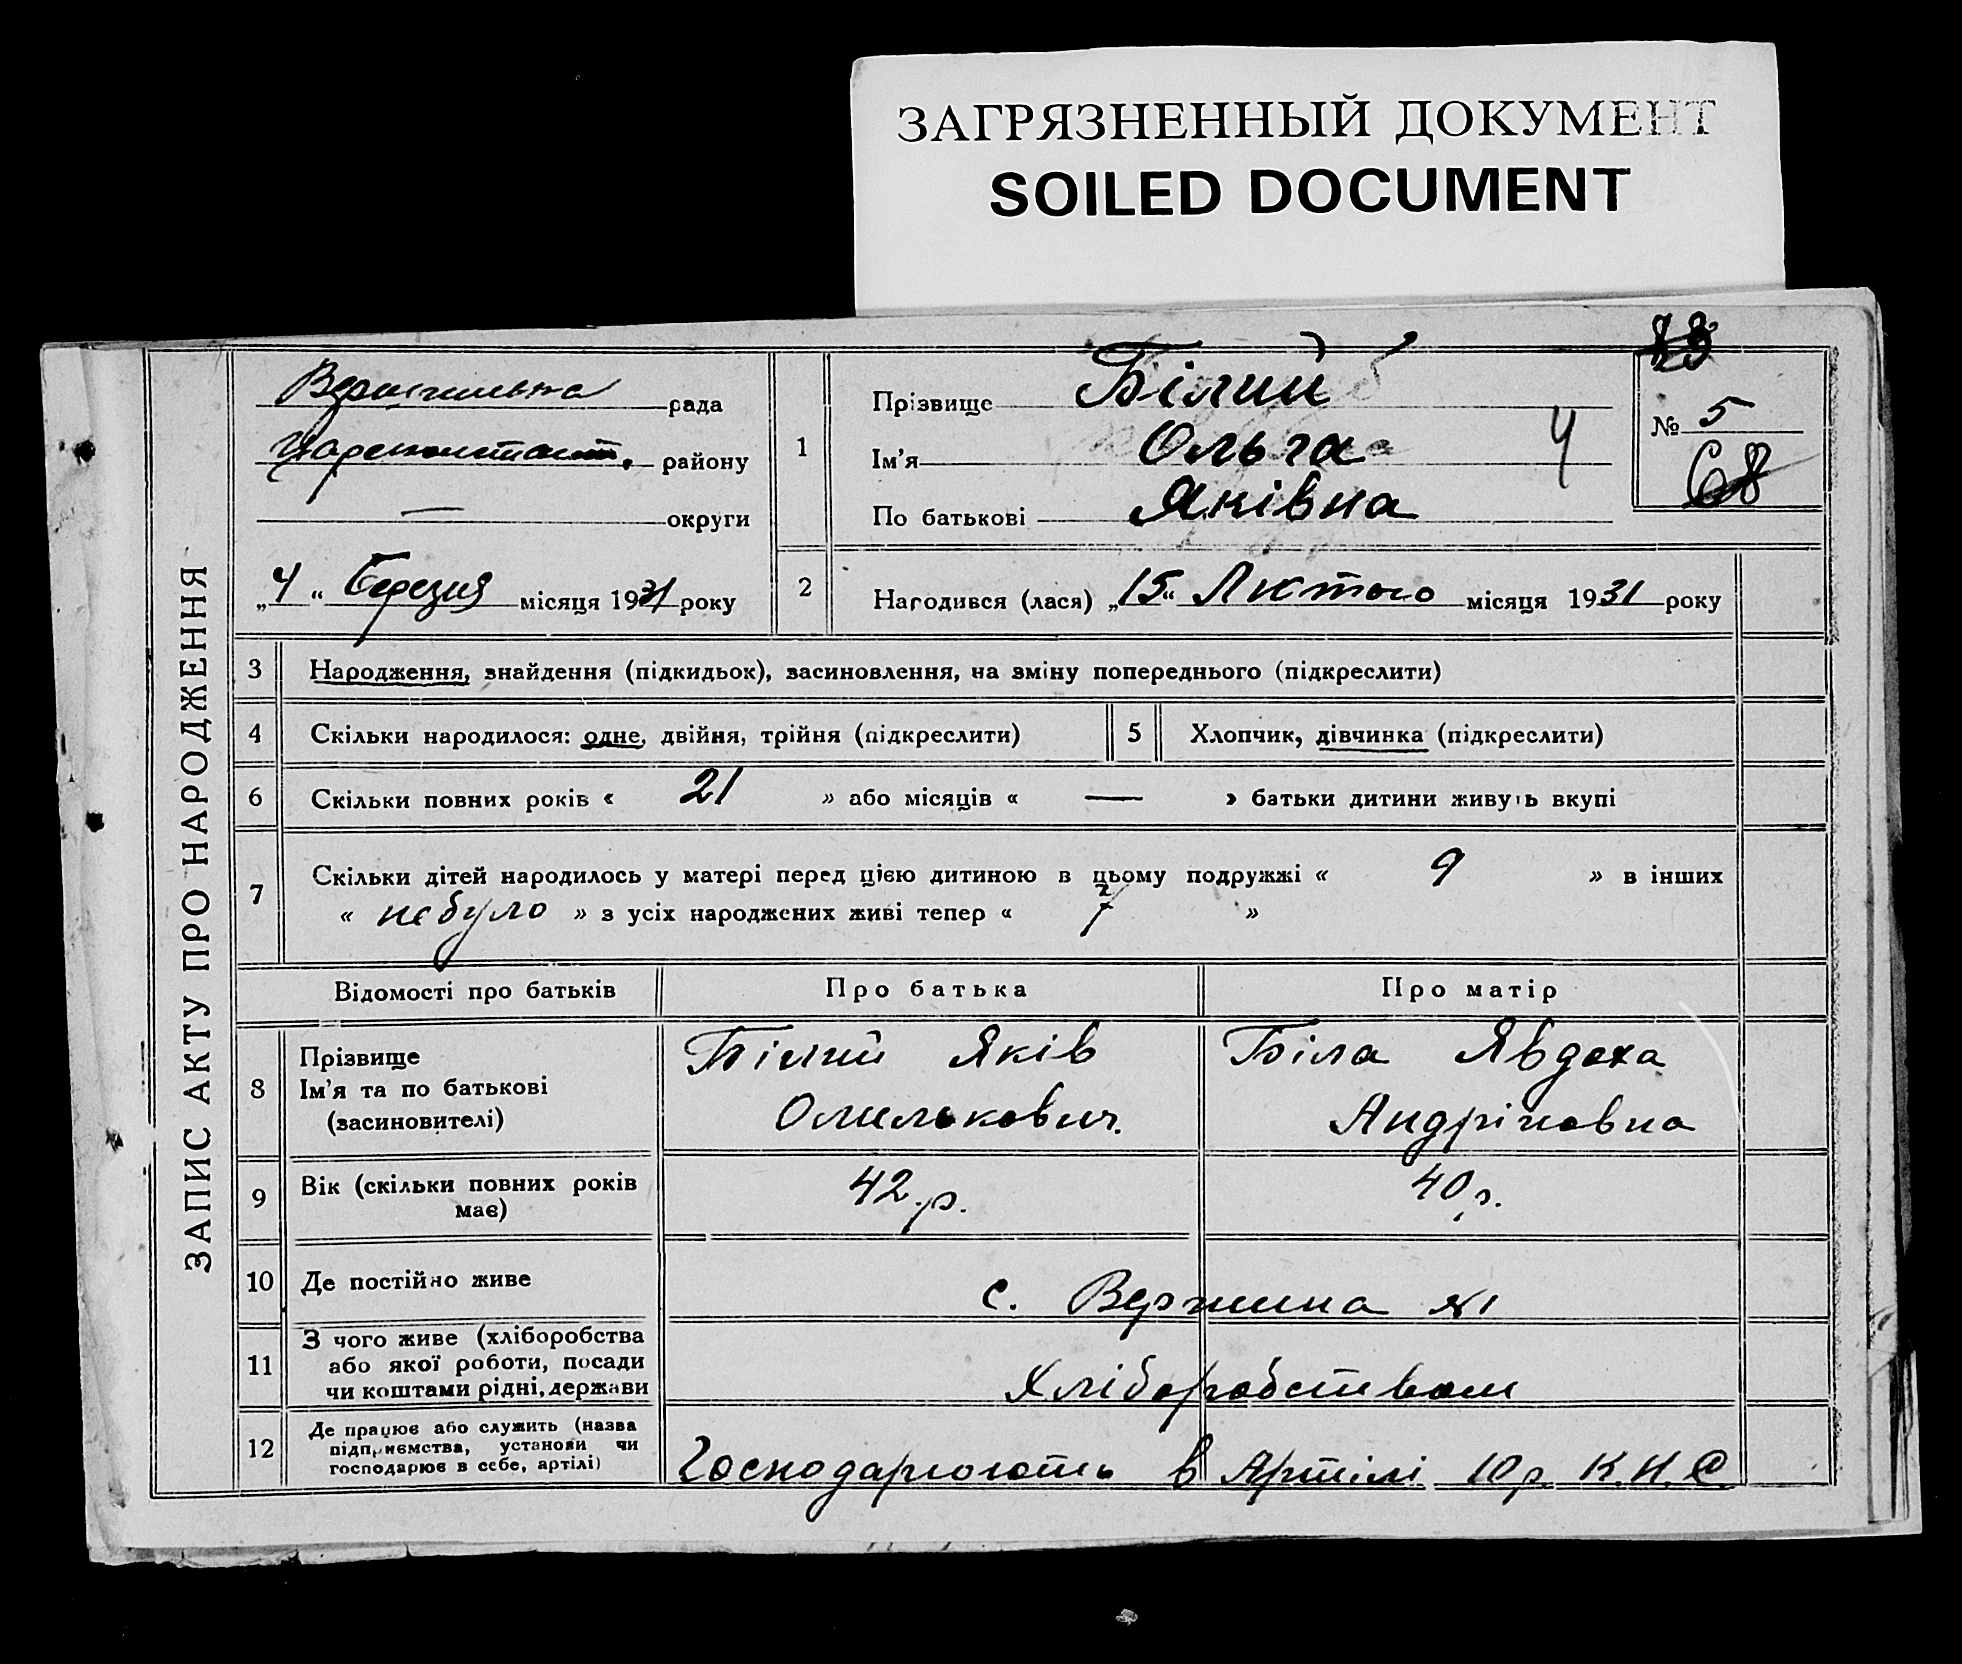 ЗАГРЯЗНЕННЫЙ ДОКУМЕНТ
SOILED DOCUMENT
ЗАПИС АКТУ ПРО НАРОДЖЕННЯ
рада
району
— округи
„4“ Березня місяця 1931 року
1
Прізвище Білий
Ім'я Ольга
По батькові Яківна
4
№ 5
68
2
Народився (лася) „15“ Лютого місяця 1931 року
3 Народження, знайдення (підкидьок), засиновлення, на зміну попереднього (підкреслити)
4 Скільки народилося: одне, двійня, трійня (підкреслити)
5 Хлопчик, дівчинка (підкреслити)
6 Скільки повних років « 21 » або місяців « — » батьки дитини живуть вкупі
7 Скільки дітей народилось у матері перед цією дитиною в цьому подружжі « 9 » в інших
« небуло » з усіх народжених живі тепер « 7 »
Відомості про батьків Про батька Про матір
8 Прізвище
Ім'я та по батькові
(засиновителі)
Білий Яків
Омелькович.
Біла Явдоха
Андріновна
9 Вік (скільки повних років
має)
42 р. 40 р.
10 Де постійно живе с. Вершина №1
11 З чого живе (хліборобства
або якої роботи, посади
чи коштами рідні, держави
Хліборобством
12 Де працює або служить (назва
підприємства, установи чи
господарює в себе, артілі)
Господарюють в Артілі 10 р. К.Н.С.